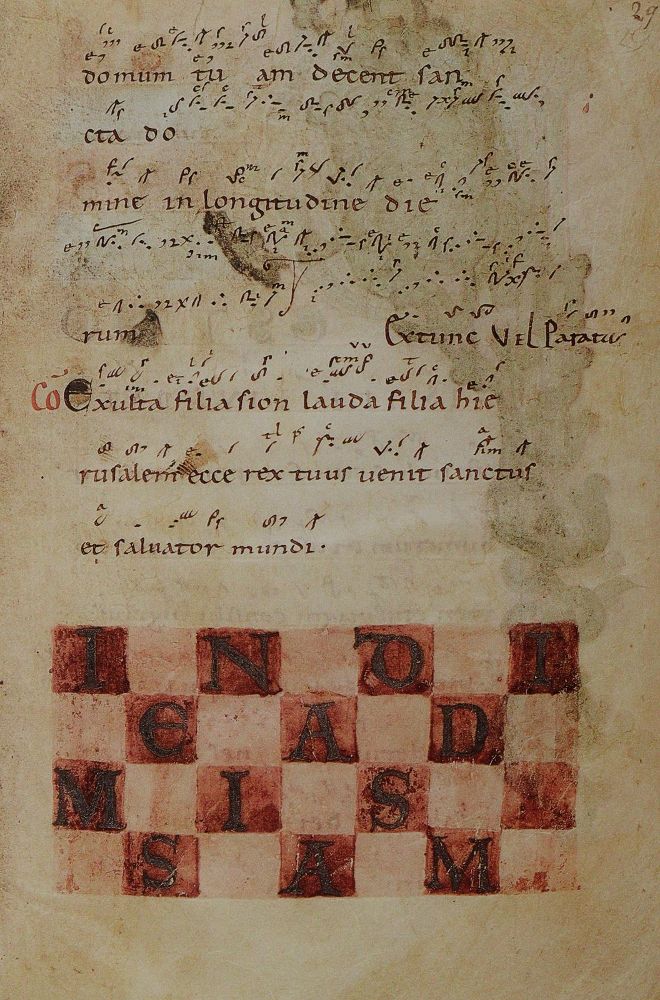 29
domum tu am decent san
cta do
mine in longitudine die
rum Ex tunc Vel Paratus
Cō Exulta filia sion lauda filia hie
rusalem ecce rex tuus uenit sanctus
et saluator mundi·
I N D I
E A D
M I S
S A M